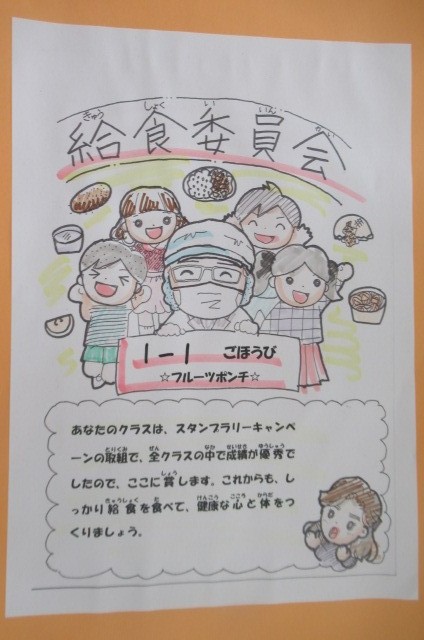 きゅう しょく い いん かい
給食委員会
1-1 ごほうび
☆フルーツポンチ☆
あなたのクラスは、スタンプラリーキャンペ
ーンの取組で、全クラスの中で成績が優秀で
したので、ここに賞します。これからも、し
っかり給食を食べて、健康な心と体をつ
くりましょう。